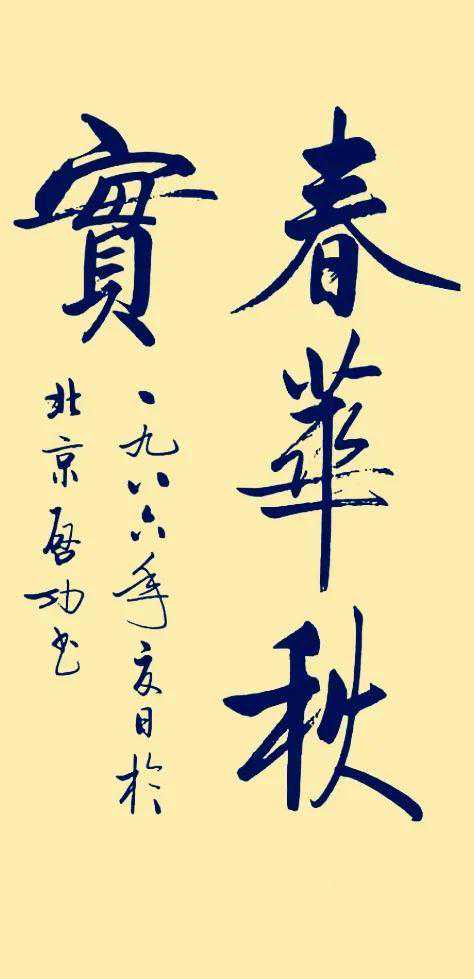 春華秋
實
一九八六年夏日於
北京啓功书